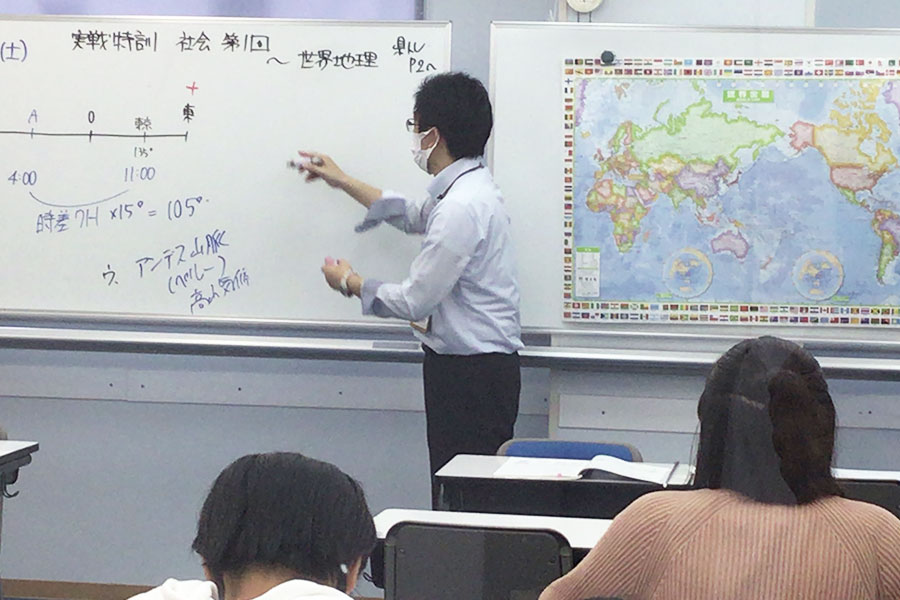 (土) 実戦特訓 社会 第1回
~ 世界地理
P2~
+
A 0 東京 東
135°
4:00 11:00
時差7H ×15° = 105°
ウ. アンデス山脈
(ペルー)
高山気候